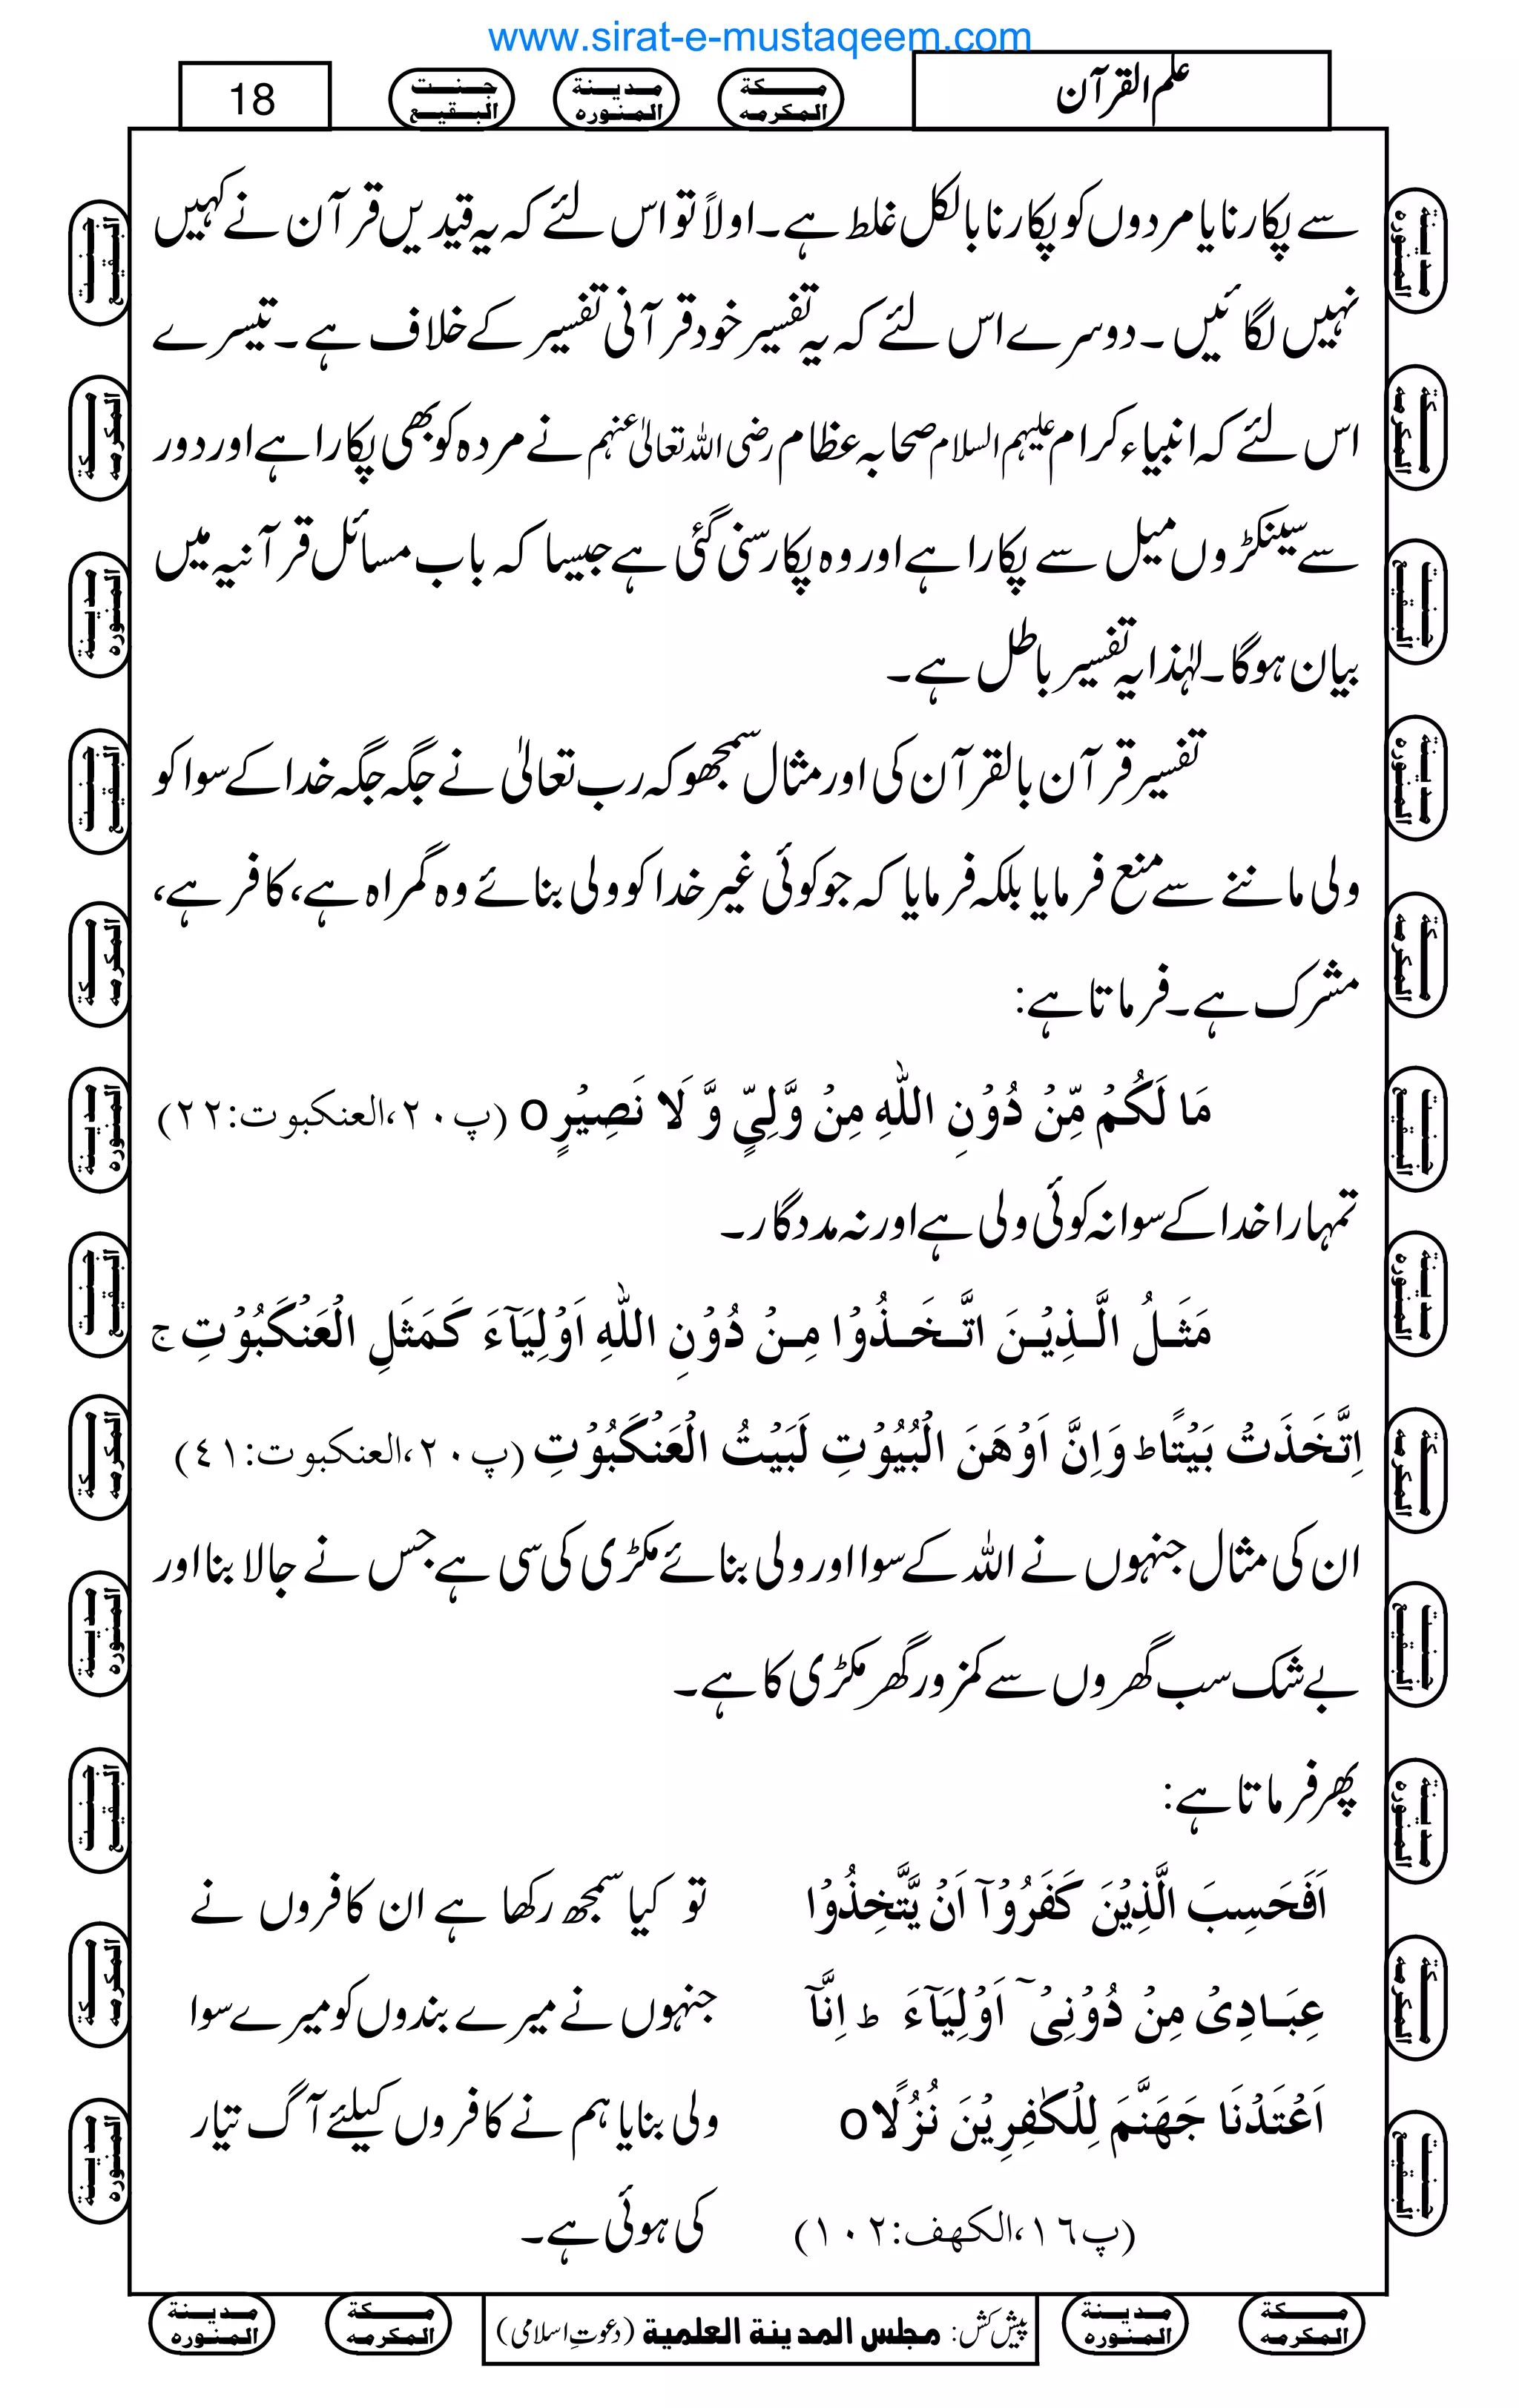 www.sirat-e-mustaqeem.com
علم القرآن
مكة المكرمه
مدينة المنوره
جنت البقيع
18
سے پکارنا یا مردوں کو پکارنا بالکل غلط ہے۔ اولاً تو اس لئے کہ یہ قیدیں قرآن نے کہیں
نہیں لگائیں۔ دوسرے اس لئے کہ یہ تفسیر خود قرآنی تفسیر کے خلاف ہے۔ تیسرے
اس لئے کہ انبیاء کرام علیہم السلام صحابہ عظام رضی اللہ تعالیٰ عنہم نے مردہ کو بھی پکارا ہے اور دور
سے سینکڑوں میل سے پکارا ہے اور وہ پکار سنی گئی ہے جیسا کہ باب مسائل قرآنیہ میں
بیان ہوگا۔ لہٰذا یہ تفسیر باطل ہے۔
تفسیر قرآن بالقرآن کی اور مثال سمجھو کہ رب تعالیٰ نے جگہ جگہ خدا کے سوا کو
ولی ماننے سے منع فرمایا بلکہ فرمایا کہ جو کوئی غیر خدا کو ولی بنائے وہ گمراہ ہے، کافر ہے،
مشرک ہے۔ فرماتا ہے:
مَا لَكُمْ مِّنْ دُوْنِ اللّٰهِ مِنْ وَّلِىٍّ وَّ لَا نَصِيْرٍ o (پ۲۰،العنکبوت:۲۲)
تمہارا خدا کے سوا نہ کوئی ولی ہے اور نہ مددگار۔
مَثَلُ الَّذِيْنَ اتَّخَذُوْا مِنْ دُوْنِ اللّٰهِ اَوْلِيَآءَ كَمَثَلِ الْعَنْكَبُوْتِ ج
اِتَّخَذَتْ بَيْتًا ط وَ اِنَّ اَوْهَنَ الْبُيُوْتِ لَبَيْتُ الْعَنْكَبُوْتِ (پ۲۰،العنکبوت:٤١)
ان کی مثال جنہوں نے اللہ کے سوا اور ولی بنائے مکڑی کی سی ہے جس نے جالا بنا اور
بے شک سب گھروں سے کمزور گھر مکڑی کا ہے۔
پھر فرماتا ہے:
اَفَحَسِبَ الَّذِيْنَ كَفَرُوْآ اَنْ يَّتَّخِذُوْا
عِبَادِىْ مِنْ دُوْنِىْٓ اَوْلِيَآءَ ط اِنَّآ
اَعْتَدْنَا جَهَنَّمَ لِلْكٰفِرِيْنَ نُزُلًا o
(پ١٦،الكهف:١٠٢)
تو کیا سمجھ رکھا ہے ان کافروں نے
جنہوں نے میرے بندوں کو میرے سوا
ولی بنایا ہم نے کافروں کیلئے آگ تیار
کی ہوئی ہے۔
پیش کش: مجلس المدينة العلمية (دعوتِ اسلامی)
مكة المكرمه
مدينة المنوره
مكة المكرمه
مدينة المنوره